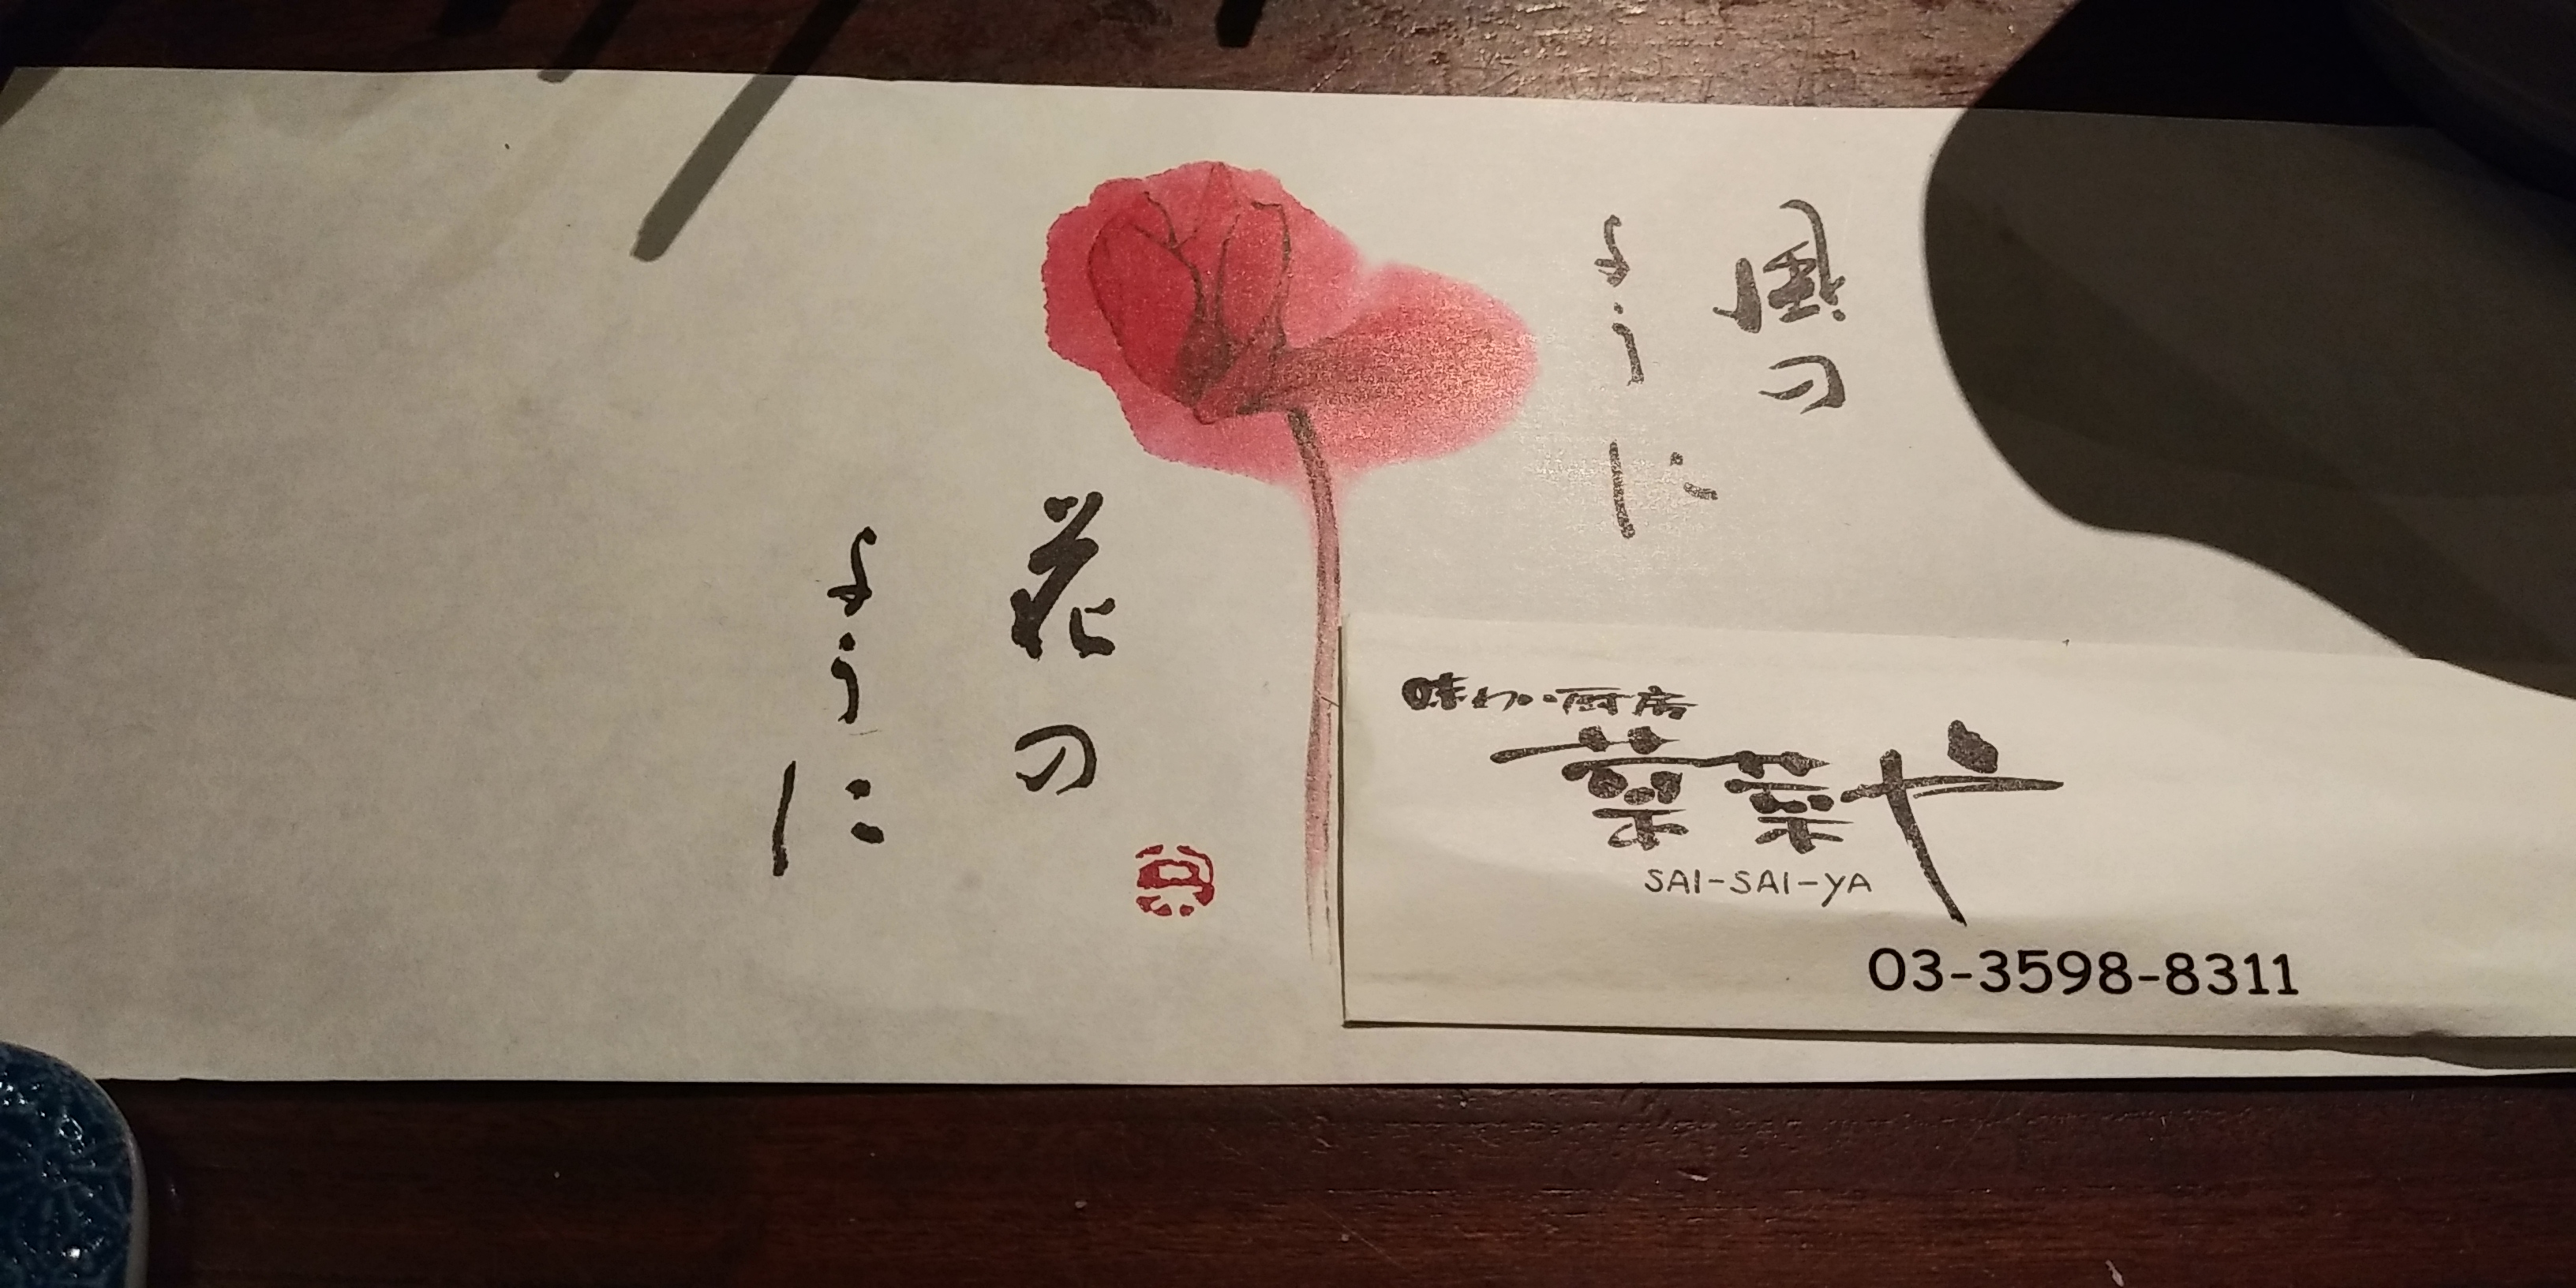 風の
ように
花の
ように
味わい厨房
菜菜や
SAI-SAI-YA
03-3598-8311